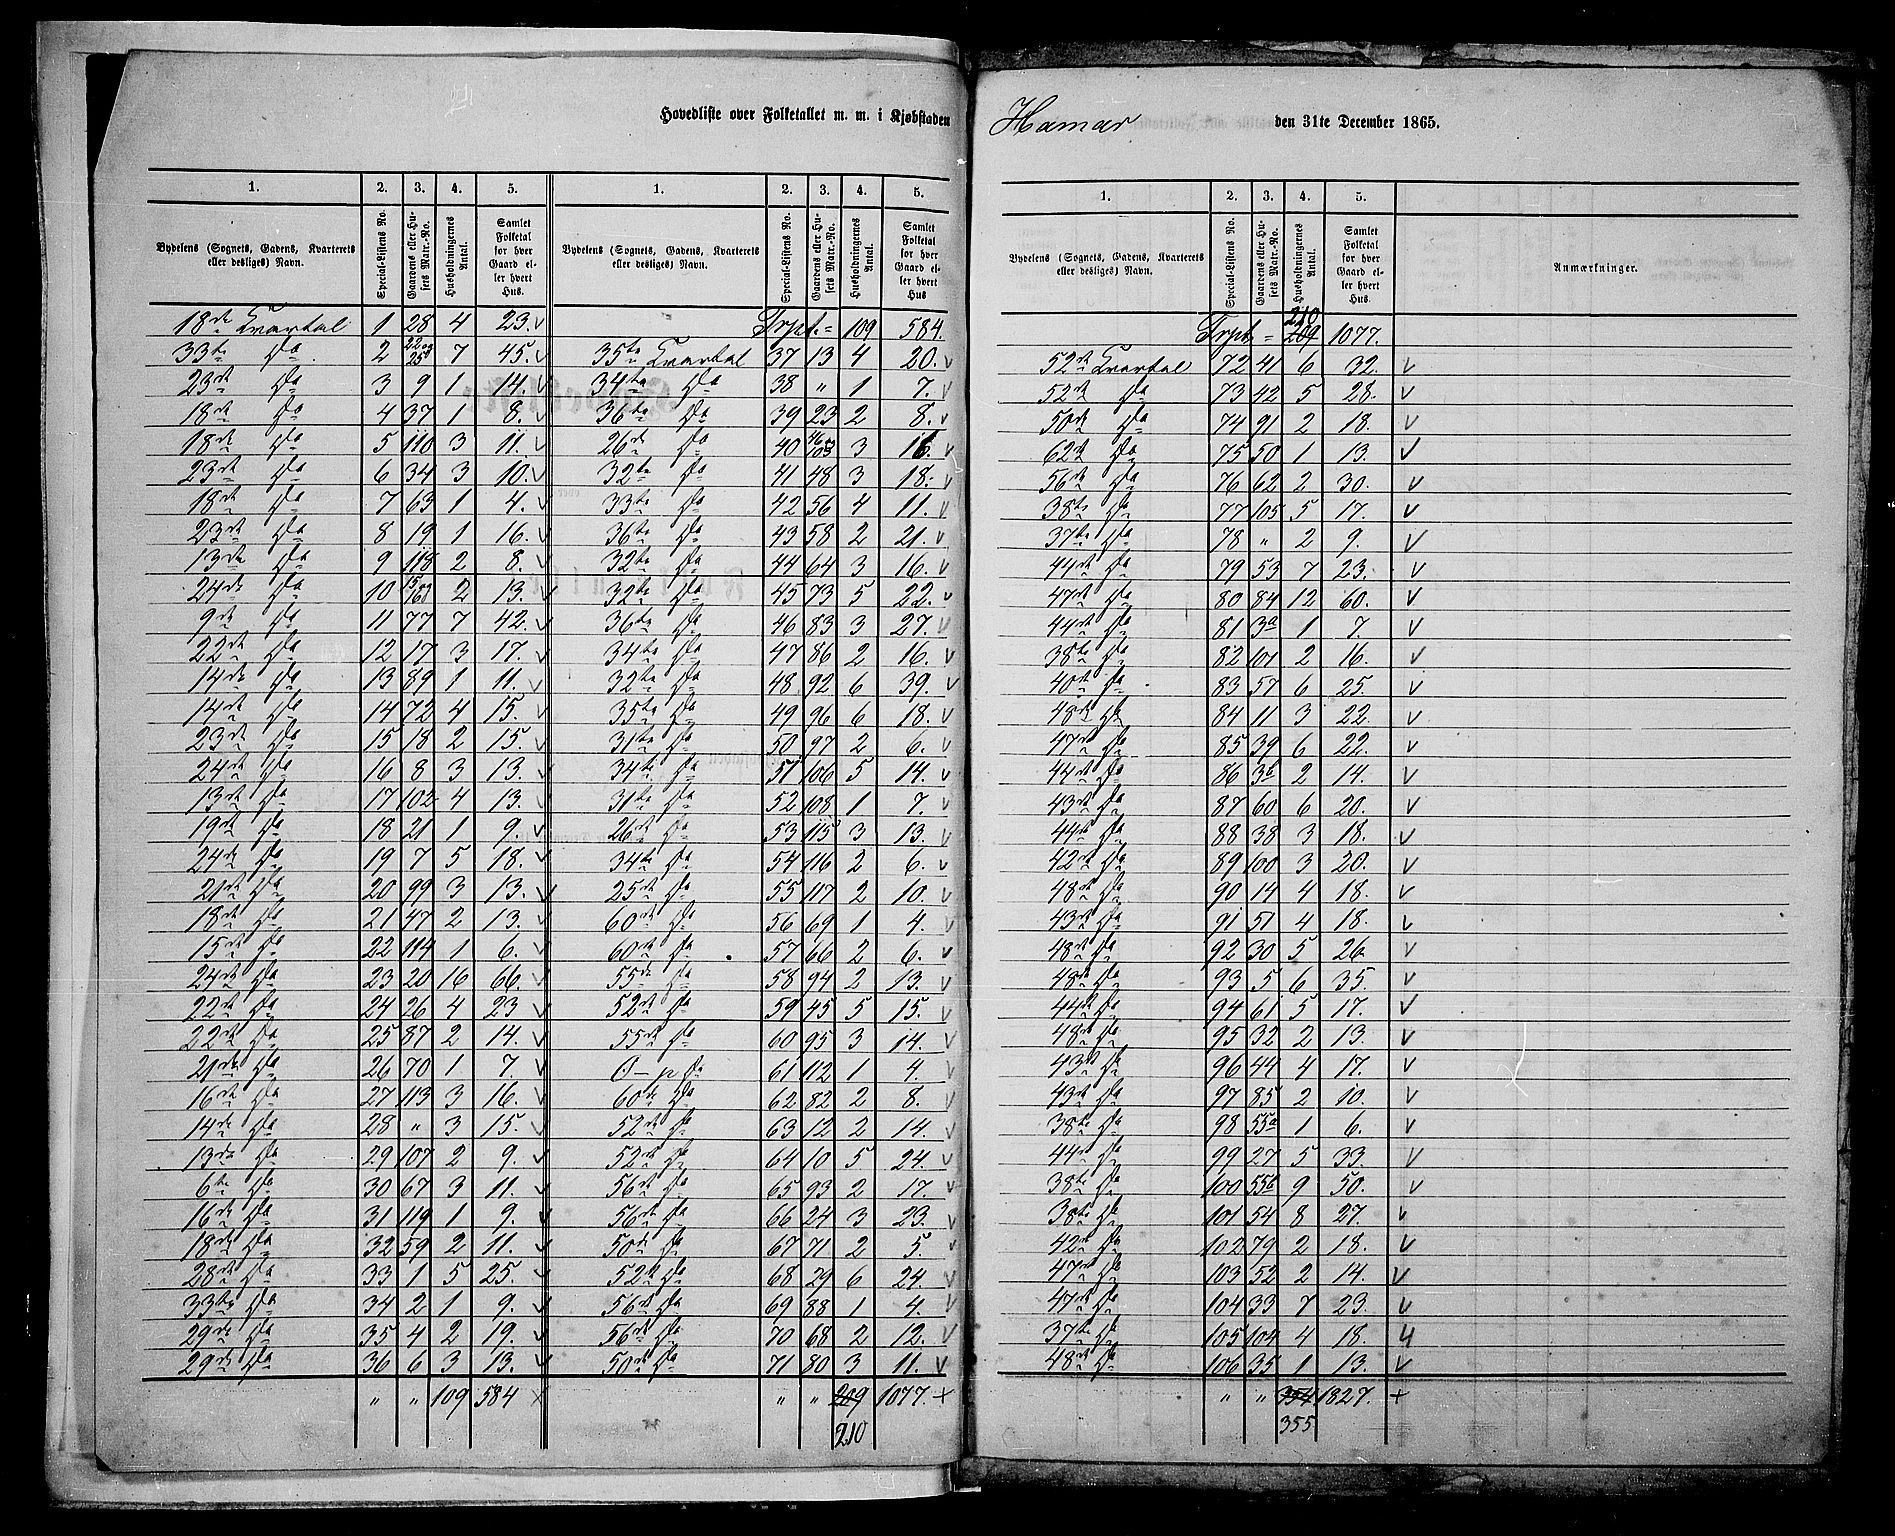 Hovedliste over Folketallet m. m. i Kjøbstaden Hamar den 31te December 1865.
1. 2. 3. 4. 5. 1. 2. 3. 4. 5.
Bydelens (Sognets, Gadens, Kvarterets eller desliges) Navn. Special-Listens No. Gaardens eller Husets Matr.-No. Husholdningernes Antal. Samlet Folketal for hver Gaard eller hvert Hus. Bydelens (Sognets, Gadens, Kvarterets eller desliges) Navn. Special-Listens No. Gaardens eller Husets Matr.-No. Husholdningernes Antal. Samlet Folketal for hver Gaard eller hvert Hus
18de Kvartal 1 28 4 23. Trpt = 109 584.
33te Do 2 22 og 25 7 45. 35te Kvartal 37 13 4 20.
23de Do 3 9 1 14. 34te Do 38 " 1 7.
18de Do 4 37 1 8. 36te Do 39 23 2 8.
18de Do 5 110 3 11. 26de Do 40 46 103 3 16.
23de Do 6 34 3 10. 32te Do 41 48 3 18.
18de Do 7 63 1 4. 33te Do 42 56 4 11.
23de Do 8 19 1 16. 36te Do 43 58 2 21.
13de Do 9 118 2 8. 32te Do 44 64 3 16.
24de Do 10 15 og 16 2 13. 32te Do 45 73 5 22.
9de Do 11 77 7 42. 36te Do 46 83 3 27.
22de Do 12 17 3 17. 34te Do 47 86 2 16.
14de Do 13 89 1 11. 32te Do 48 92 6 39.
14de Do 14 72 4 15. 35te Do 49 96 6 18.
23de Do 15 18 2 15. 31te Do 50 97 2 6.
24de Do 16 8 3 13. 34te Do 51 106 5 14.
13de Do 17 102 4 13. 31te Do 52 108 1 7.
19de Do 18 21 1 9. 26de Do 53 115 3 13.
24de Do 19 7 5 18. 34te Do 54 116 2 6.
21de Do 20 99 3 13. 25de Do 55 117 2 10.
18de Do 21 47 2 13. 60de Do 56 69 1 4.
15de Do 22 114 1 6. 60de Do 57 66 2 6.
24de Do 23 20 16 66. 55de Do 58 94 2 13.
22de Do 24 26 4 23 52de Do 59 45 5 15.
22de Do 25 87 2 14. 55de Do 60 95 3 14.
21de Do 26 70 1 7. 0 — p Do 61 112 1 4.
16de Do 27 113 3 16. 60de Do 62 82 2 8.
14de Do 28 " 3 15. 52de Do 63 12 2 14.
13de Do 29 107 2 9. 52de Do 64 10 5 24.
6te Do 30 67 3 11. 56de Do 65 93 2 17.
16de Do 31 119 1 9. 56de Do 66 24 3 23.
18de Do 32 59 2 11. 50de Do 67 71 2 5.
28de Do 33 1 5 25. 52de Do 68 29 6 24.
33te Do 34 2 1 9. 56de Do 69 88 1 4.
29de Do 35 4 2 19. 56de Do 70 68 2 12.
29de Do 36 6 3 13. 50de Do 71 80 3 11.
" " 109 584 " " 209 1077.
210
1. 2. 3. 4. 5.
Bydelens (Sognets, Gadens, Kvarterets eller desliges) Navn. Special-Listens No. Gaardens eller Husets Matr.-No. Husholdningernes Antal. Samlet Folketal for hver Gaard eller hvert Hus Anmærkninger.
210
Trpt = 209 1077.
52de Kvartal 72 41 6 32.
52de Do 73 42 5 28.
50de Do 74 91 2 18.
62de Do 75 50 1 13.
56de Do 76 62 2 30.
38te Do 77 105 5 17.
37te Do 78 " 2 9.
44de Do 79 53 7 23.
47de Do 80 84 12 60.
44de Do 81 3a 1 7.
38te Do 82 101 2 16.
40de Do 83 57 6 25.
48de Do 84 11 3 22.
47de Do 85 39 6 22.
44de Do 86 3b 2 14.
43de Do 87 60 6 20.
44de Do 88 38 3 18.
42de Do 89 100 3 20.
48de Do 90 14 4 18.
43de Do 91 51 4 18.
48de Do 92 30 5 26.
48de Do 93 5 6 35.
44de Do 94 61 5 17.
48de Do 95 32 2 13.
43de Do 96 44 4 17.
43de Do 97 85 2 10.
38te Do 98 55a 1 6.
44de Do 99 27 5 33.
38te Do 100 55b 9 50.
38te Do 101 54 8 27.
42de Do 102 79 2 18.
47de Do 103 52 2 14.
47de Do 104 33 7 23.
37te Do 105 104 4 18.
48de Do 106 35 1 13.
" " 354 1827.
355